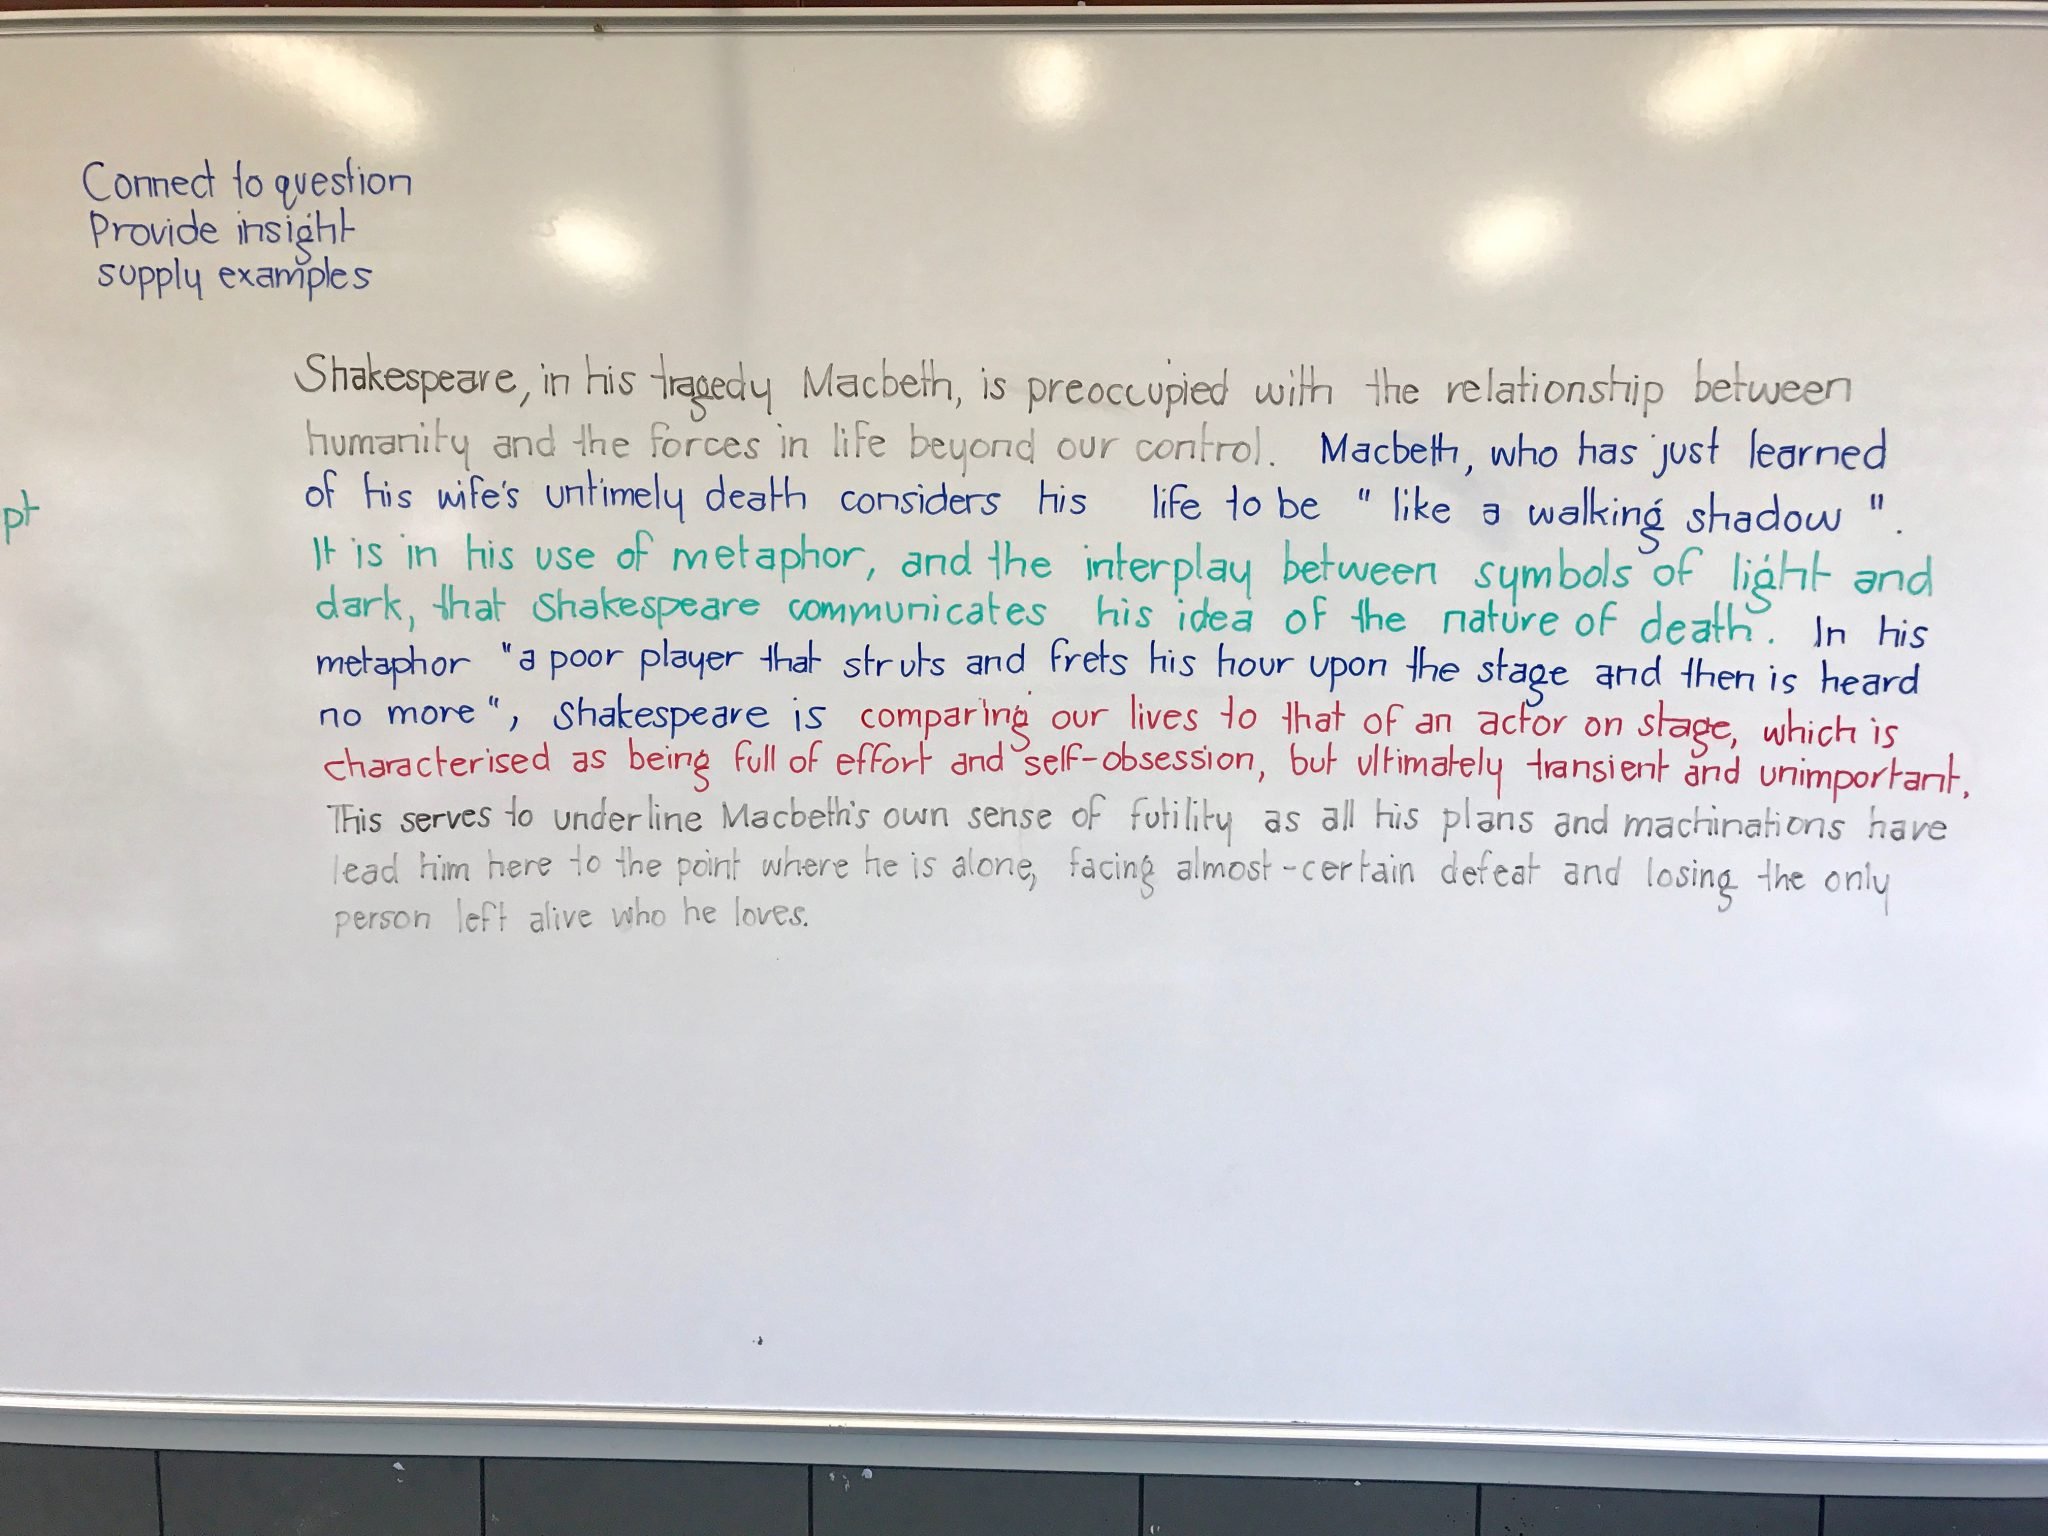 Connect to question
Provide insight
supply examples
Shakespeare, in his tragedy Macbeth, is preoccupied with the relationship between
humanity and the forces in life beyond our control. Macbeth, who has just learned
of his wife's untimely death considers his life to be "like a walking shadow".
pt
It is in his use of metaphor, and the interplay between symbols of light and
dark, that Shakespeare communicates his idea of the nature of death. In his
metaphor "a poor player that struts and frets his hour upon the stage and then is heard
no more", Shakespeare is comparing our lives to that of an actor on stage, which is
characterised as being full of effort and self-obsession, but ultimately transient and unimportant.
This serves to underline Macbeth's own sense of futility as all his plans and machinations have
lead him here to the point where he is alone, facing almost-certain defeat and losing the only
person left alive who he loves.